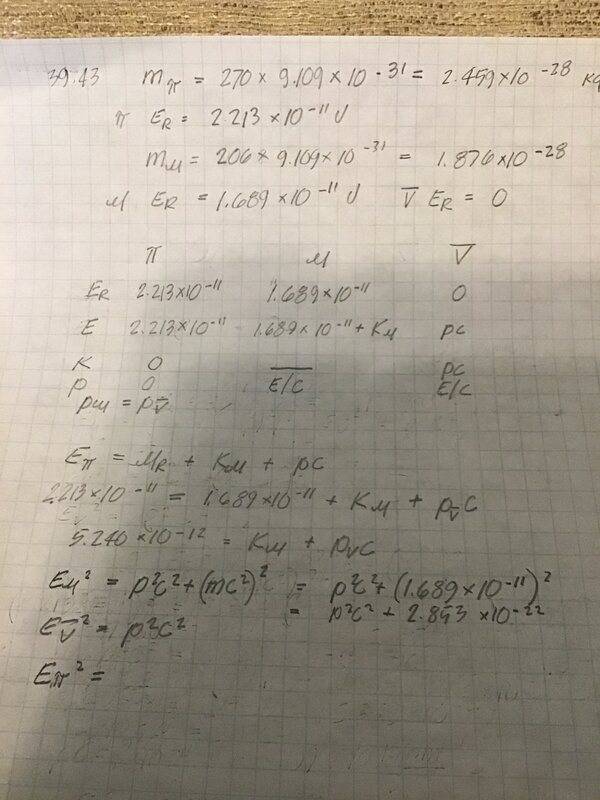 39.43 mπ = 270 × 9.109 × 10^-31 = 2.459×10^-28 kg
π E_R = 2.213 × 10^-11 J
m_M = 206 × 9.109×10^-31 = 1.876×10^-28
M E_R = 1.689 × 10^-11 J V̅ E_R = 0
π M V̅
E_R 2.213×10^-11 1.689×10^-11 0
E 2.213×10^-11 1.689×10^-11 + K_M pc
K 0 — pc
p 0 E/C E/C
p_M = p_V̅
E_π = M_R + K_M + pc
2.213×10^-11 = 1.689×10^-11 + K_M + p_V̅ C
5.240×10^-12 = K_M + p_V C
E_M² = p²c² + (mc²)² = p²c² + (1.689×10^-11)²
= p²c² + 2.853 ×10^-22
E_V̅² = p²c²
E_π² =